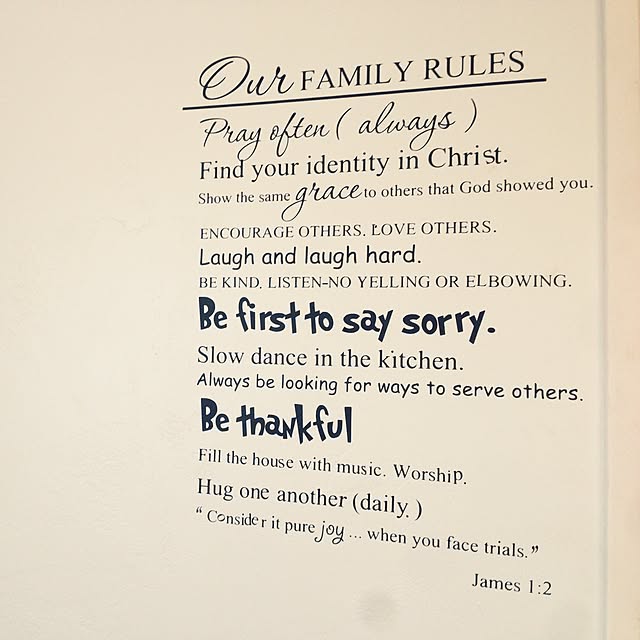 Our FAMILY RULES
Pray often ( always )
Find your identity in Christ.
Show the same grace to others that God showed you.
ENCOURAGE OTHERS. LOVE OTHERS.
Laugh and laugh hard.
BE KIND, LISTEN-NO YELLING OR ELBOWING.
Be first to say sorry.
Slow dance in the kitchen.
Always be looking for ways to serve others.
Be thankful
Fill the house with music. Worship.
Hug one another (daily. )
“ Consider it pure joy ... when you face trials.”
James 1:2